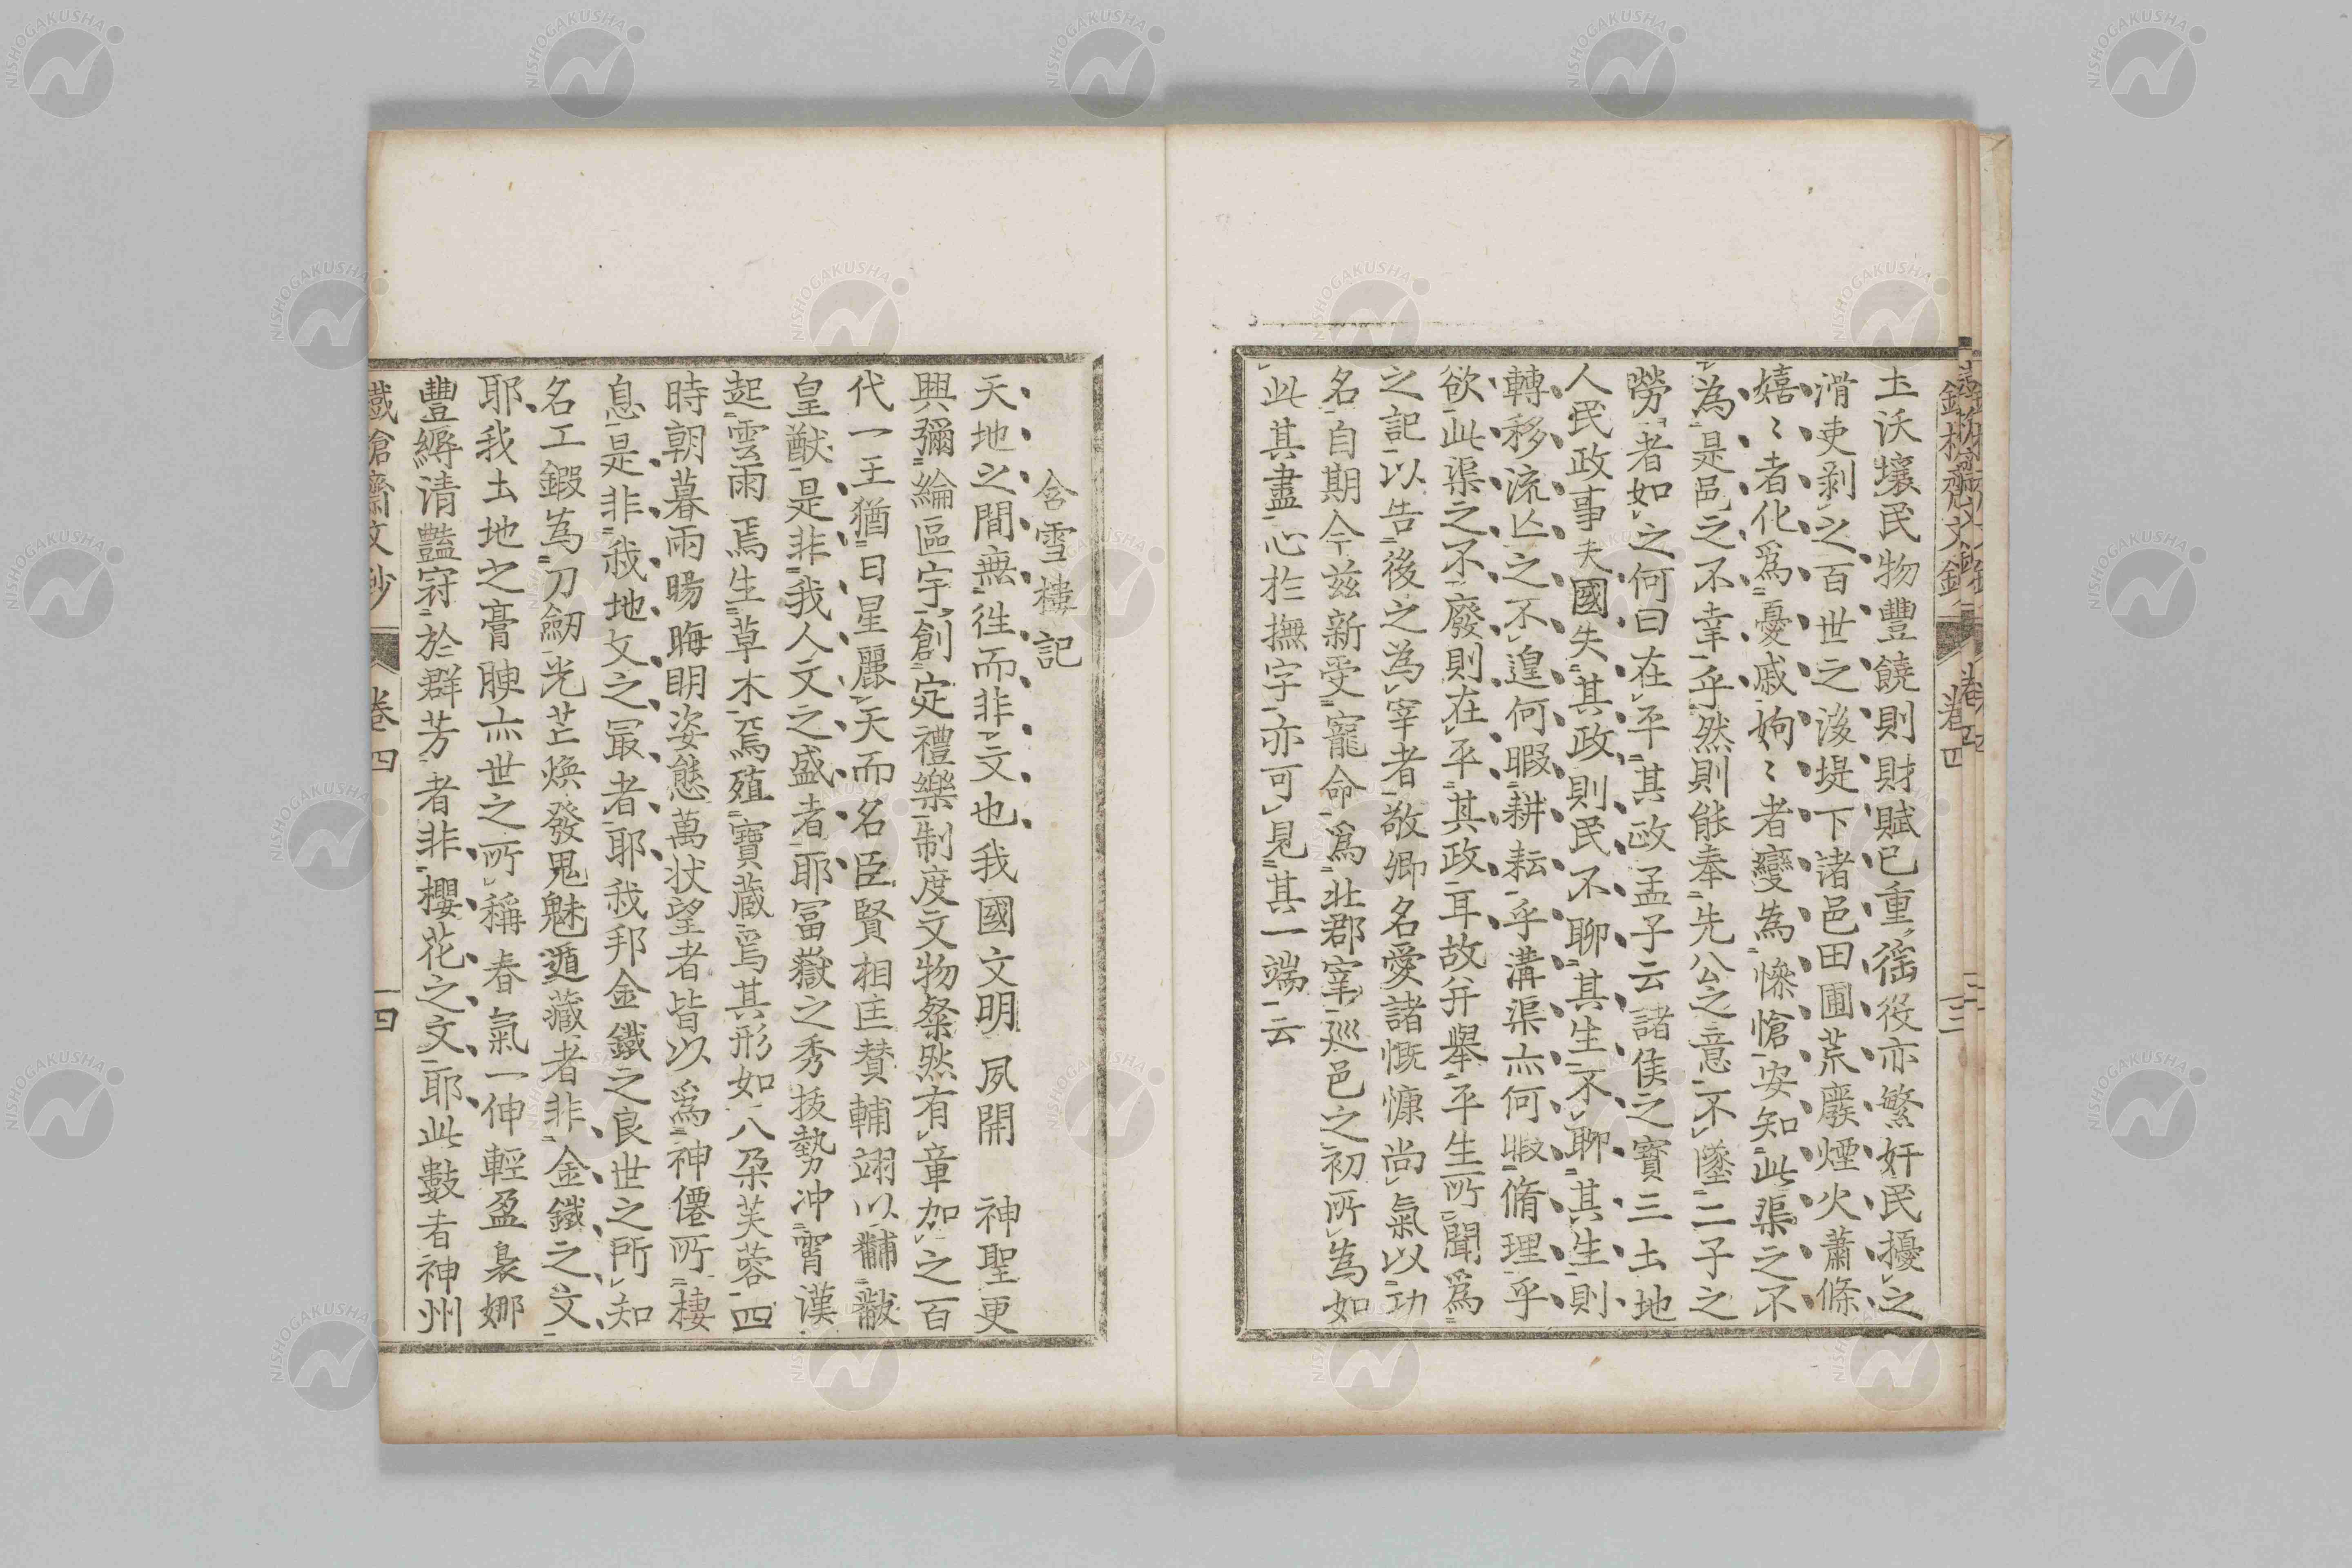 土沃壤民物豐饒則財賦已重徭役亦繁奸民擾之
滑吏剥之百世之後堤下諸邑田圃荒廢煙火蕭條
嬉〻者化爲憂戚姁〻者變為慘愴安知此渠之不
為是邑之不幸乎然則能奉先公之意不墜二子之
勞者如之何曰在平其政孟子云諸侯之寶三土地
人民政事夫國失其政則民不聊其生不聊其生則
轉移流亾之不遑何暇耕耘乎溝渠亦何暇脩理乎
欲此渠之不廢則在平其政耳故并舉平生所聞爲
之記以告後之為宰者敬卿名愛諸慨慷尚氣以功
名自期今茲新受寵命爲北郡宰巡邑之初所為如
此其盡心於撫字亦可見其一端云
含雪樓記
天地之間無徃而非文也我國文明夙開 神聖更
興彌綸區宇創定禮樂制度文物粲然有章加之百
代一王猶日星麗天而名臣賢相匡賛輔翊以黼黻
皇猷是非我人文之盛者耶冨嶽之秀抜勢冲霄漢
起雲雨焉生草木焉殖寶藏焉其形如八朶芙蓉四
時朝暮雨暘晦明姿態萬状望者皆以爲神僊所棲
息是非我地文之冣者耶我邦金鐵之良世之所知
名工鍛為刀劒光芒煥發鬼魅遁藏者非金鐵之文
耶我土地之膏腴亦世之所稱春氣一伸輕盈裊娜
豐縟清豔冠於群芳者非櫻花之文耶此數者神州
鐵槍齋文鈔 卷四 三
鐵槍齋文鈔 卷四 四
NISHOGAKUSHA